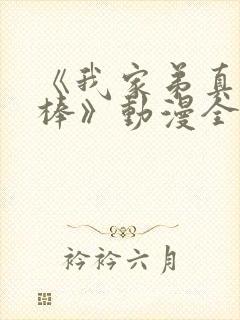 《我家弟真
棒》動漫全
衿衿六月